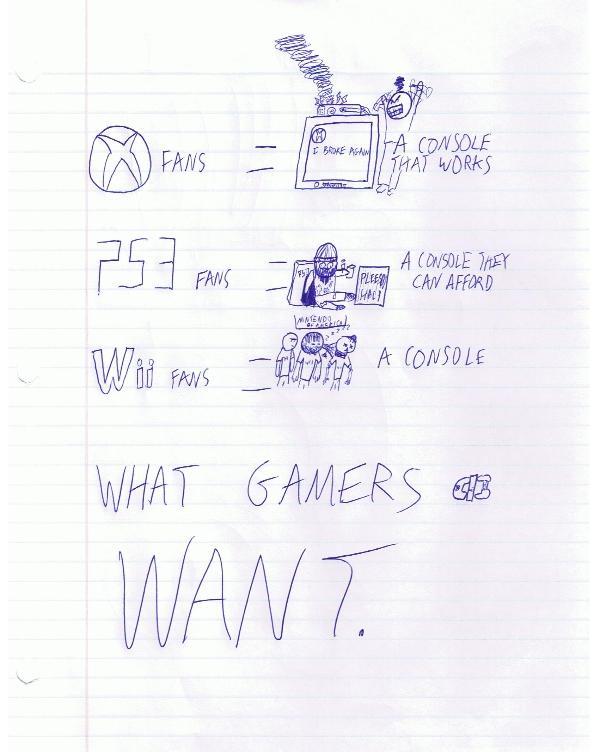 I BROKE AGAIN
FANS = A CONSOLE
THAT WORKS
PS3 FANS = A CONSOLE THEY
CAN AFFORD
NINTENDO
OF AMERICA
Wii FANS = A CONSOLE
WHAT GAMERS
WANT.